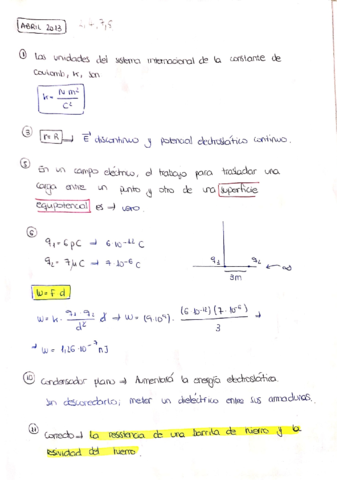 ABRIL 2013
① Las unidades del sistema internacional de la constante de
Coulomb, K, son
K = N m² / C²
N R → E discontinuo y potencial electrostático continuo.
⑤ En un campo eléctrico, el trabajo para trasladar una
carga entre un punto y otro de una superficie
equipotencial es →
⑥
q₁ = 6 pC → 6·10⁻¹² C
q₂ = 7 μC → 7·10⁻⁶ C
q₁ q₂ ← ∞
3m
W = F d
W = K · q₁ · q₂ / d² · d → W = (9·10⁹) · (6·10⁻¹²)(7·10⁻⁶) / 3 →
→ W = 1,26·10⁻⁷ J
⑩ Condensador plano → Aumentará la energía electrostática
sin descargarlo; meter un dieléctrico entre sus armaduras.
⑪ Correcto → La resistencia de una barrita de hierro y la
resividad del hierro.